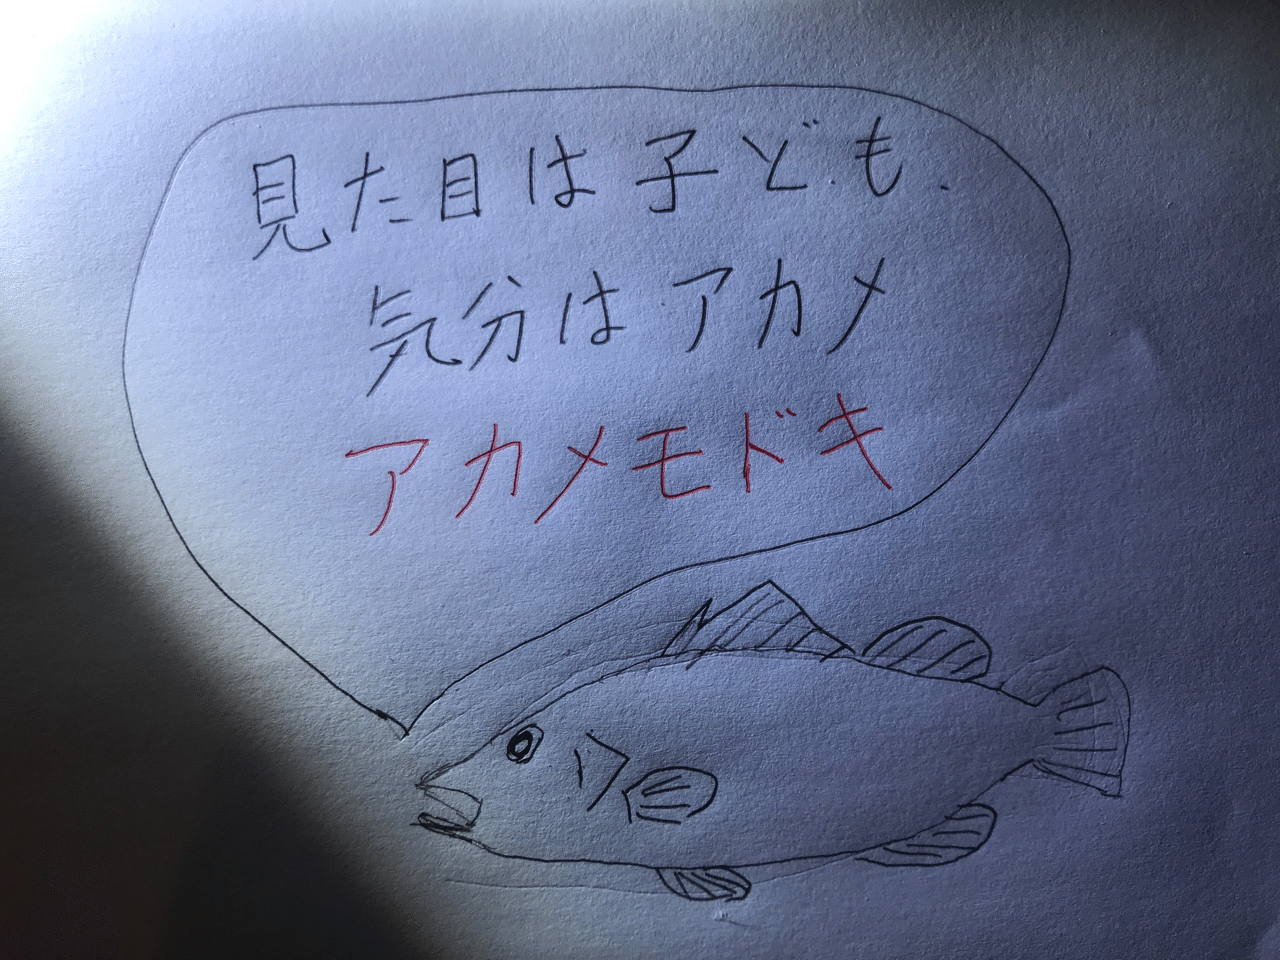 見た目は子ども、
気分はアカメ
アカメモドキ